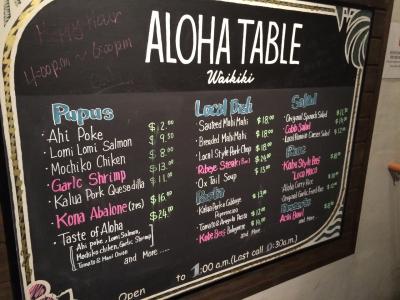 Happy Hour
4:00p.m ~ 6:00p.m
ALOHA TABLE
Waikiki
Pupus
· Ahi Poke $12.00
· Lomi Lomi Salmon $9.50
· Mochiko Chiken $8.00
· Garlic Shrimp $13.00
· Kalua Pork Quesadilla $11.00
· Kona Abalone (2PS) $16.00
· Taste of Aloha $24.00
Ahi poke, Lomi Salmon,
Mochiko chiken, Garlic Shrimp
Tomato & Maui Onion
and More ....
Local Dish
· Sauteed Mahi Mahi $18.00
· Breaded Mahi Mahi $18.00
· Local Style Pork Chop
· Ribeye Steak
· Ox Tail Soup
Pasta
· Kalua Pork & Cabbage
Peperoncino
· Tomato & Arugula Pasta
· Kobe Beef Bolognese
and More
Salad
· Original Spinach Salad
· Cobb Salad
Rice
· Kobe Style Beef
Loco Moco
· Aloha Curry Rice
· Original Garlic Fried Rice
Desserts
Acai Bowl
and More
Open
to 1:00 a.m. (Last call 0:30a.m.)